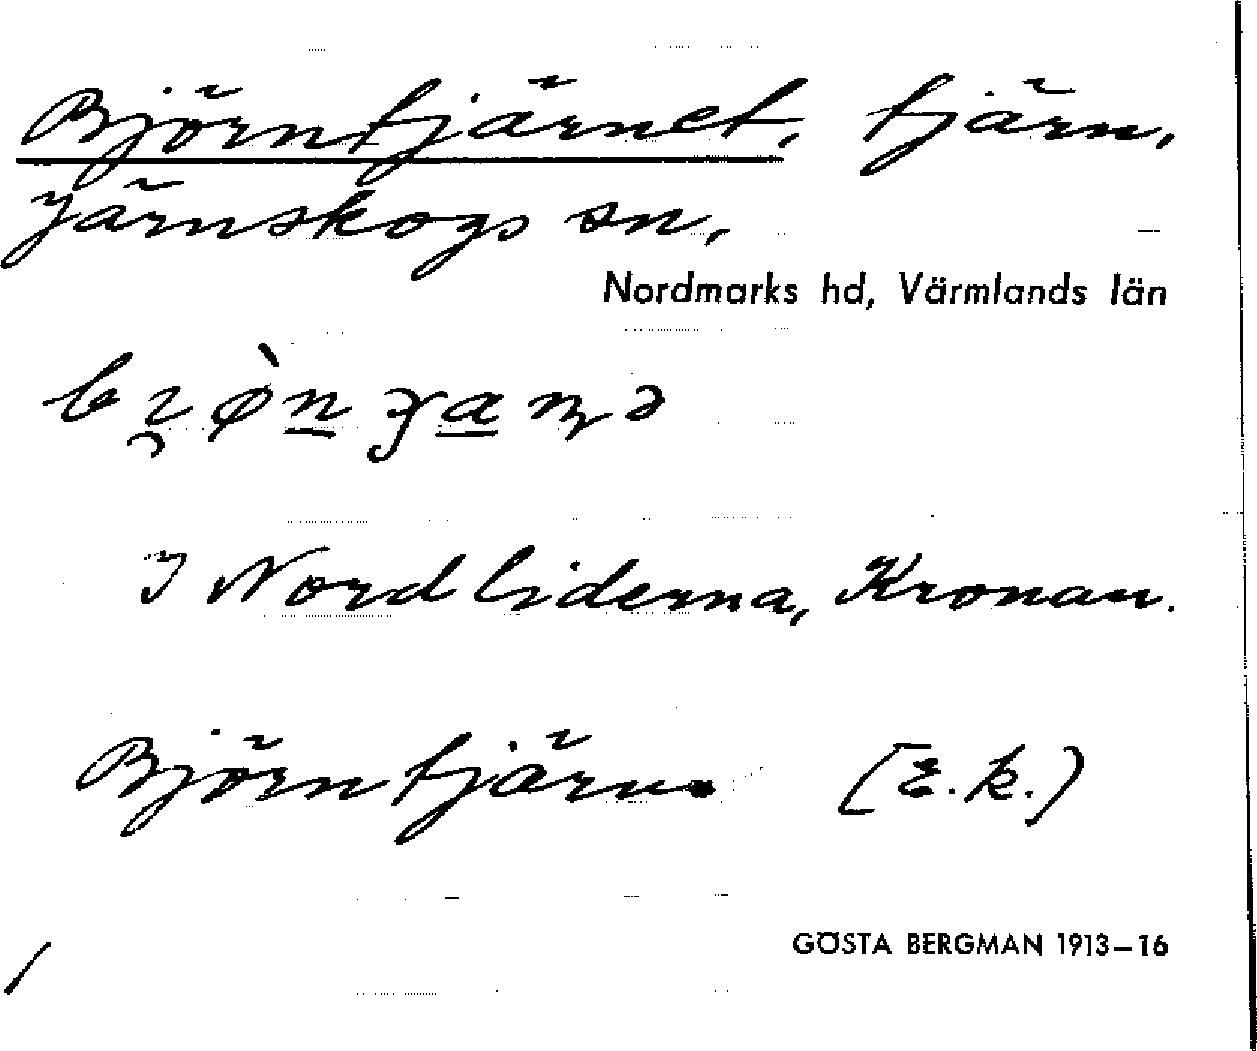 Björntjärnet, tjärn,
Järnskogs sn,
Nordmarks hd, Värmlands län
I Nordliderna, Kronan.
Björntjärn [E.k.)
GÖSTA BERGMAN 1913–16